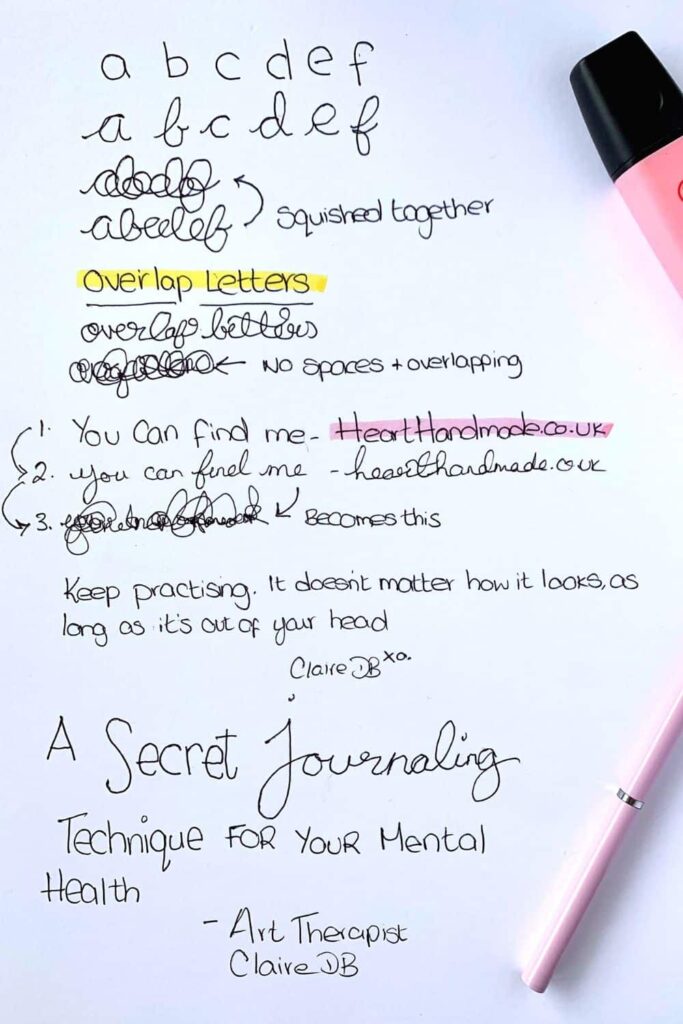 a b c d e f
a b c d e f
abcdef
abcdef squished together
Overlap Letters
overlap letters
No spaces + overlapping
1. You can find me - HeartHandmade.co.uk
2. you can find me - hearthandmade.co.uk
3. Becomes this
Keep practising. It doesn't matter how it looks, as
long as it's out of your head
Claire DB xo.
A Secret Journaling
Technique FOR YOUR Mental
Health
- Art Therapist
Claire DB